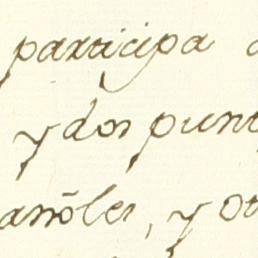 participa
y dos punt
añoles, y ot